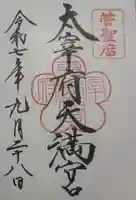 菅聖庿
太宰府天満宮
令和七年九月二十八日